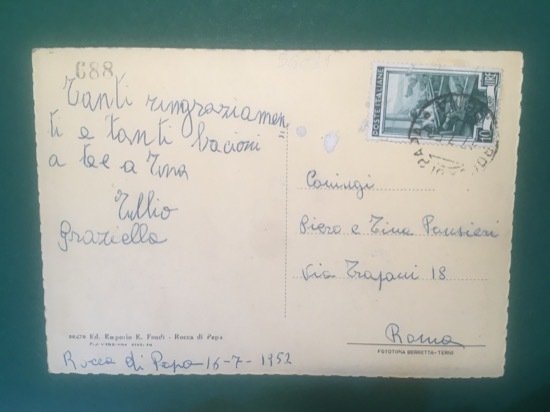 688
Tanti ringraziamen
ti e tanti bacioni
a te e a Tina
Tullio
Graziella
POSTE ITALIANE
LIRE
10
Coniugi
Piero e Tina Pansieri
Via Trapani 18
Roma
Ed. Emporio E. Fondi - Rocca di Papa
FOTOTIPIA BERRETTA - TERNI
Rocca di Papa 16-7-1952